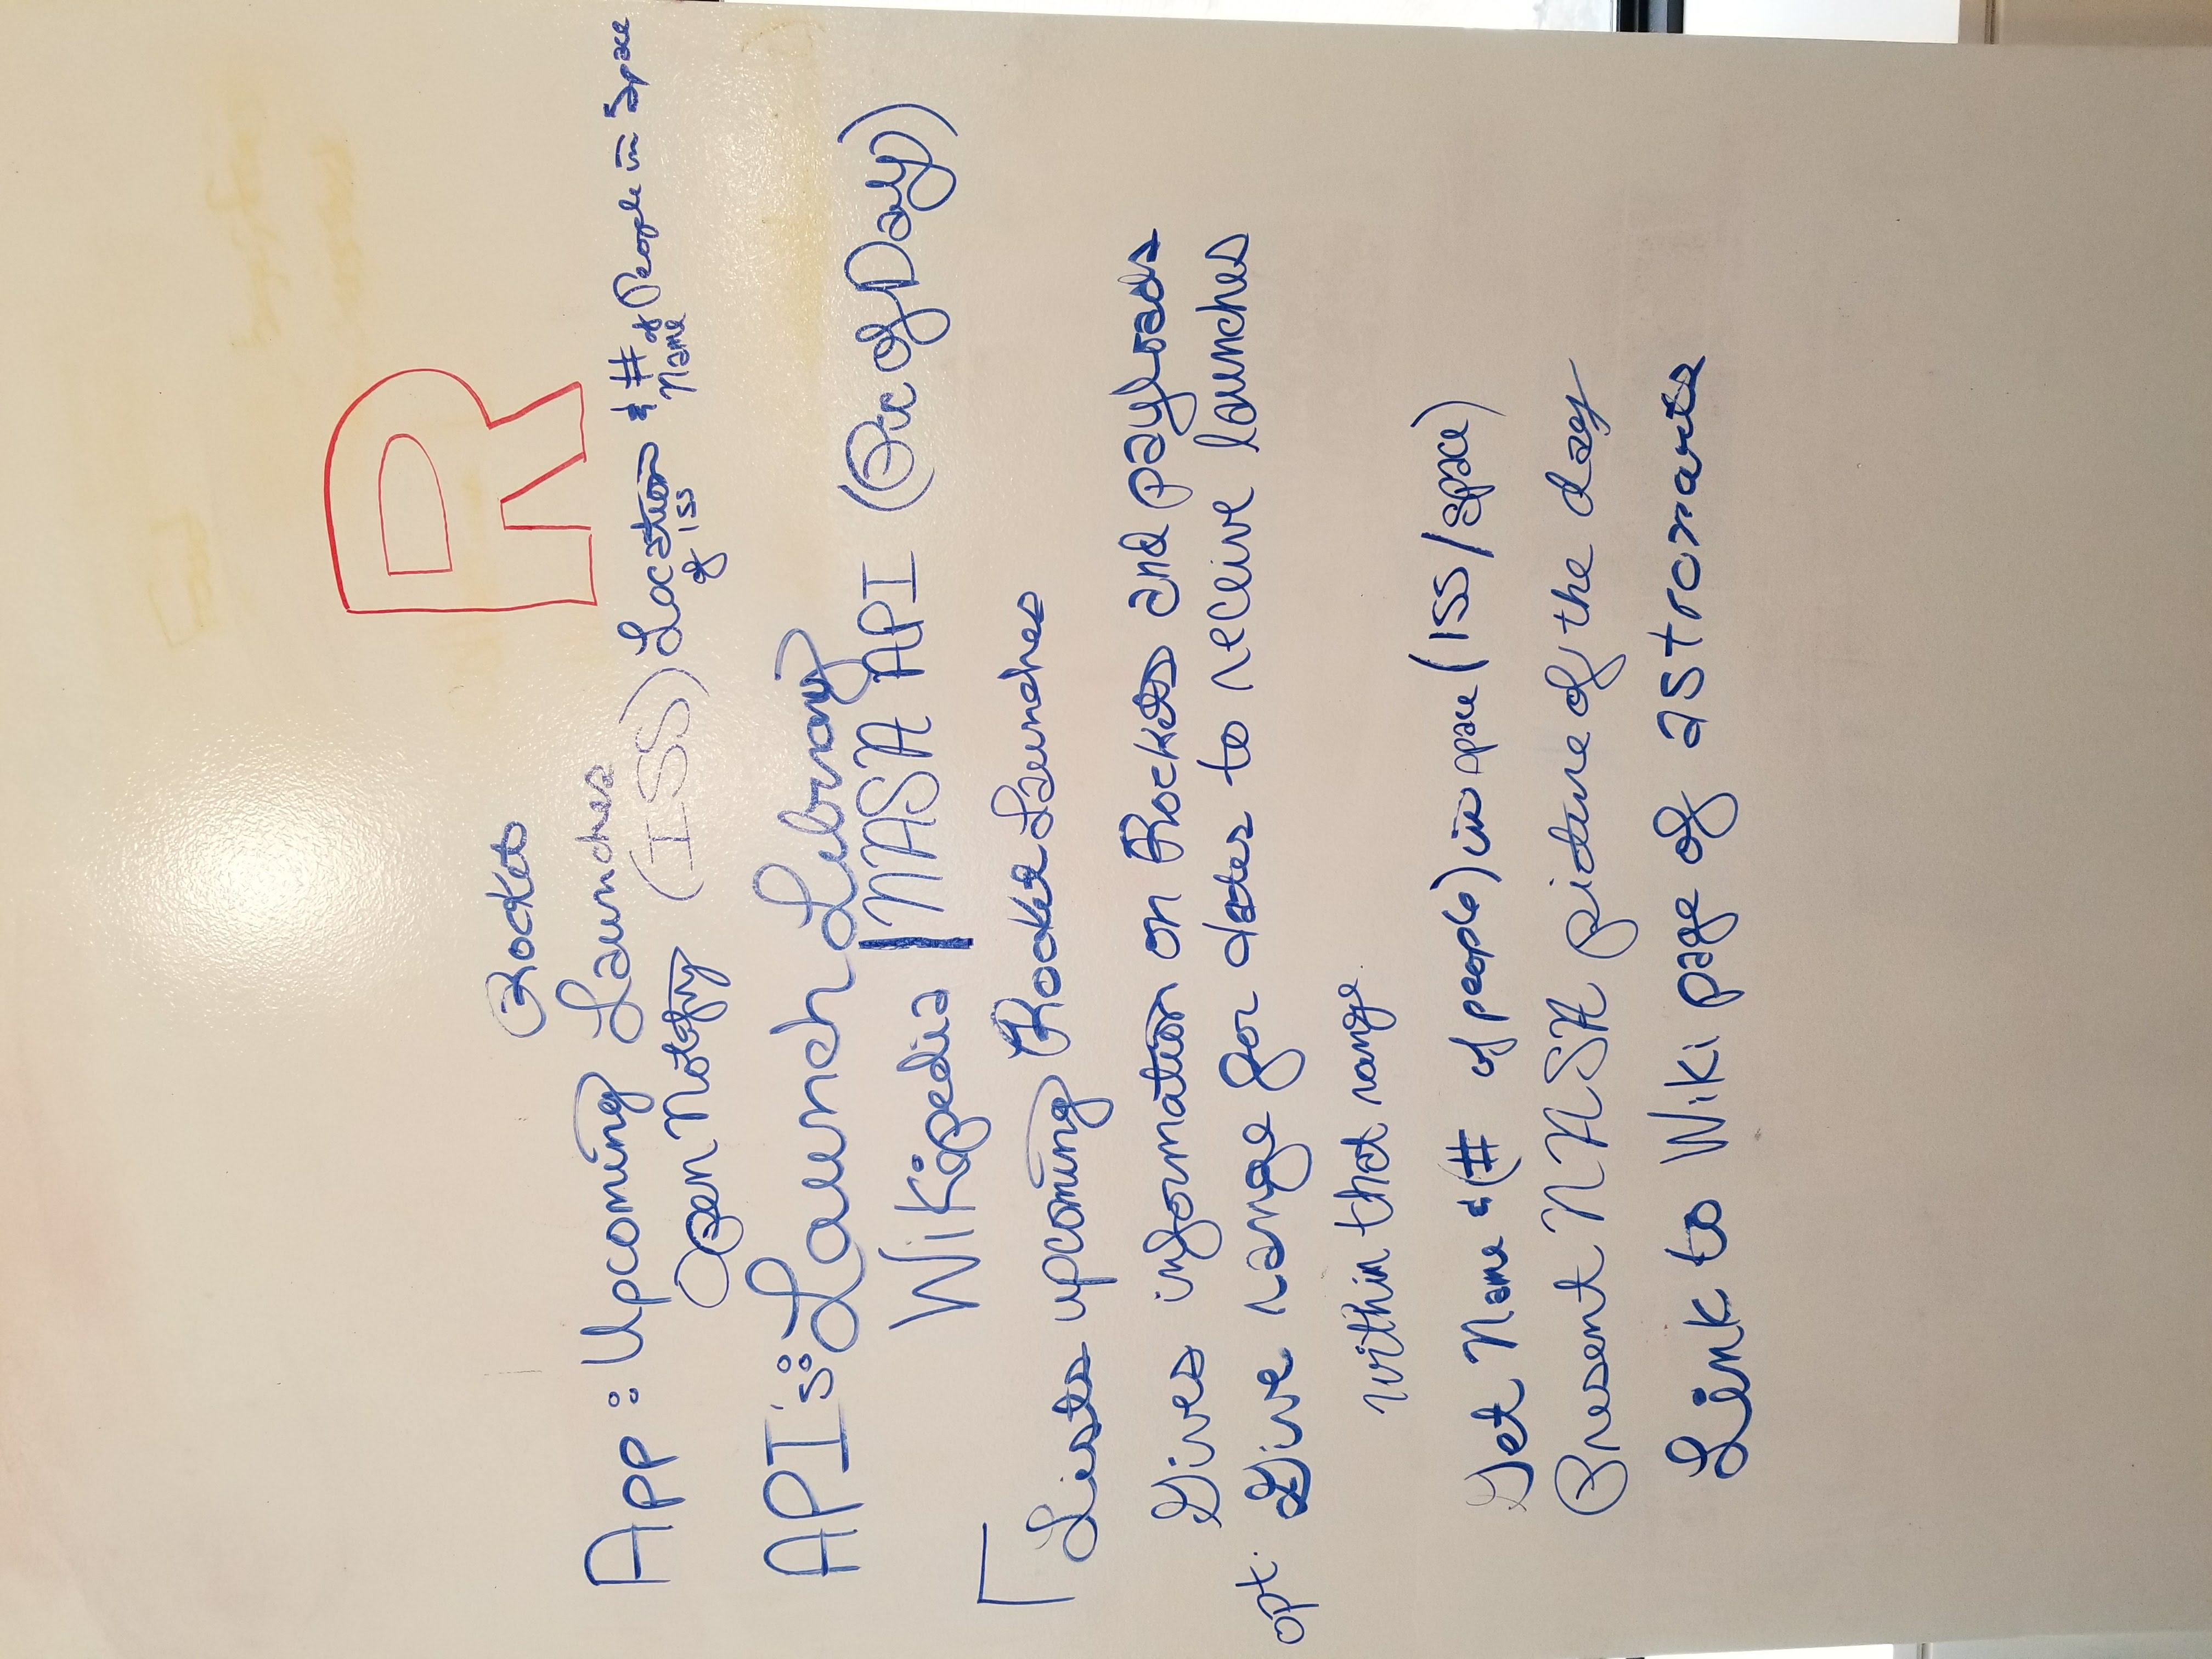 R
Rocket
App: Upcoming Launches
Open Notify (ISS) Location & # of People in Space
of ISS Name
API's: Launch Library
Wikipedia | NASA API (Pic of Day)
Lists upcoming Rocket Launches
Gives information on Rockets and payloads
opt. Give range for dates to receive launches
within that range.
Get Name & (# of people) in space (ISS/space)
Present NASA picture of the day
Link to Wiki page of astronauts